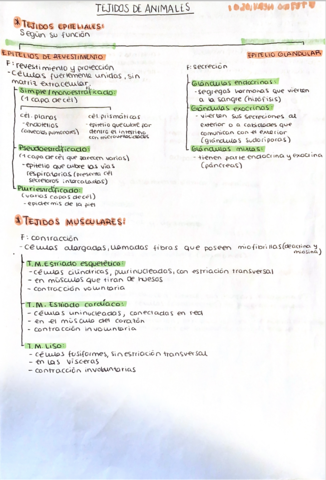 TEJIDOS DE ANIMALES
1. TEJIDOS EPITELIALES:
Según su función
EPITELIOS DE REVESTIMIENTO:
F: revestimiento y protección
- Células fuertemente unidas, sin
matriz extracelular.
- Simple/monoestratificado
(1 capa de cél)
cél. planas
- endotelios
cél. prismáticas
- epitelio que cubre por
dentro el intestino
con microvellosidades
- Pseudoestratificado
(1 capa de cél que parecen varias)
- epitelio que cubre las vías
respiratorias (presenta cél
secretoras intercaladas)
- Pluriestratificado
(varias capas de cél)
- epidermis de la piel
EPITELIO GLANDULAR:
F: secreción
Glándulas endocrinas:
- segregas hormonas que vierten
a la sangre (hipófisis)
Glándulas exocrinas:
- vierten sus secreciones al
exterior o a cavidades que
comunican con el exterior
(glándulas sudoríparas)
Glándulas mixtas:
- tienen parte endocrina y exocrina
(páncreas)
TEJIDOS MUSCULARES:
F: contracción
- Células alargadas, llamadas fibras que poseen miofibrillas (actina y
miosina)
T.M. Estriado esquelético:
- células cilíndricas, plurinucleadas, con estriación transversal
- en músculos que tiran de huesos
- contracción voluntaria
T.M. Estriado cardíaco:
- células uninucleadas, conectadas en red
- en el músculo del corazón
- contracción involuntaria
T.M. Liso:
- células fusiformes, sin estriación transversal
- en las vísceras
- contracción involuntarias